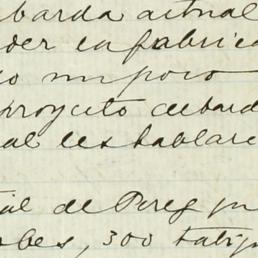 barda actual
der la fabrica
io un poco
proyecto de bard
al les hablare
ial de Pereg
bes, 300